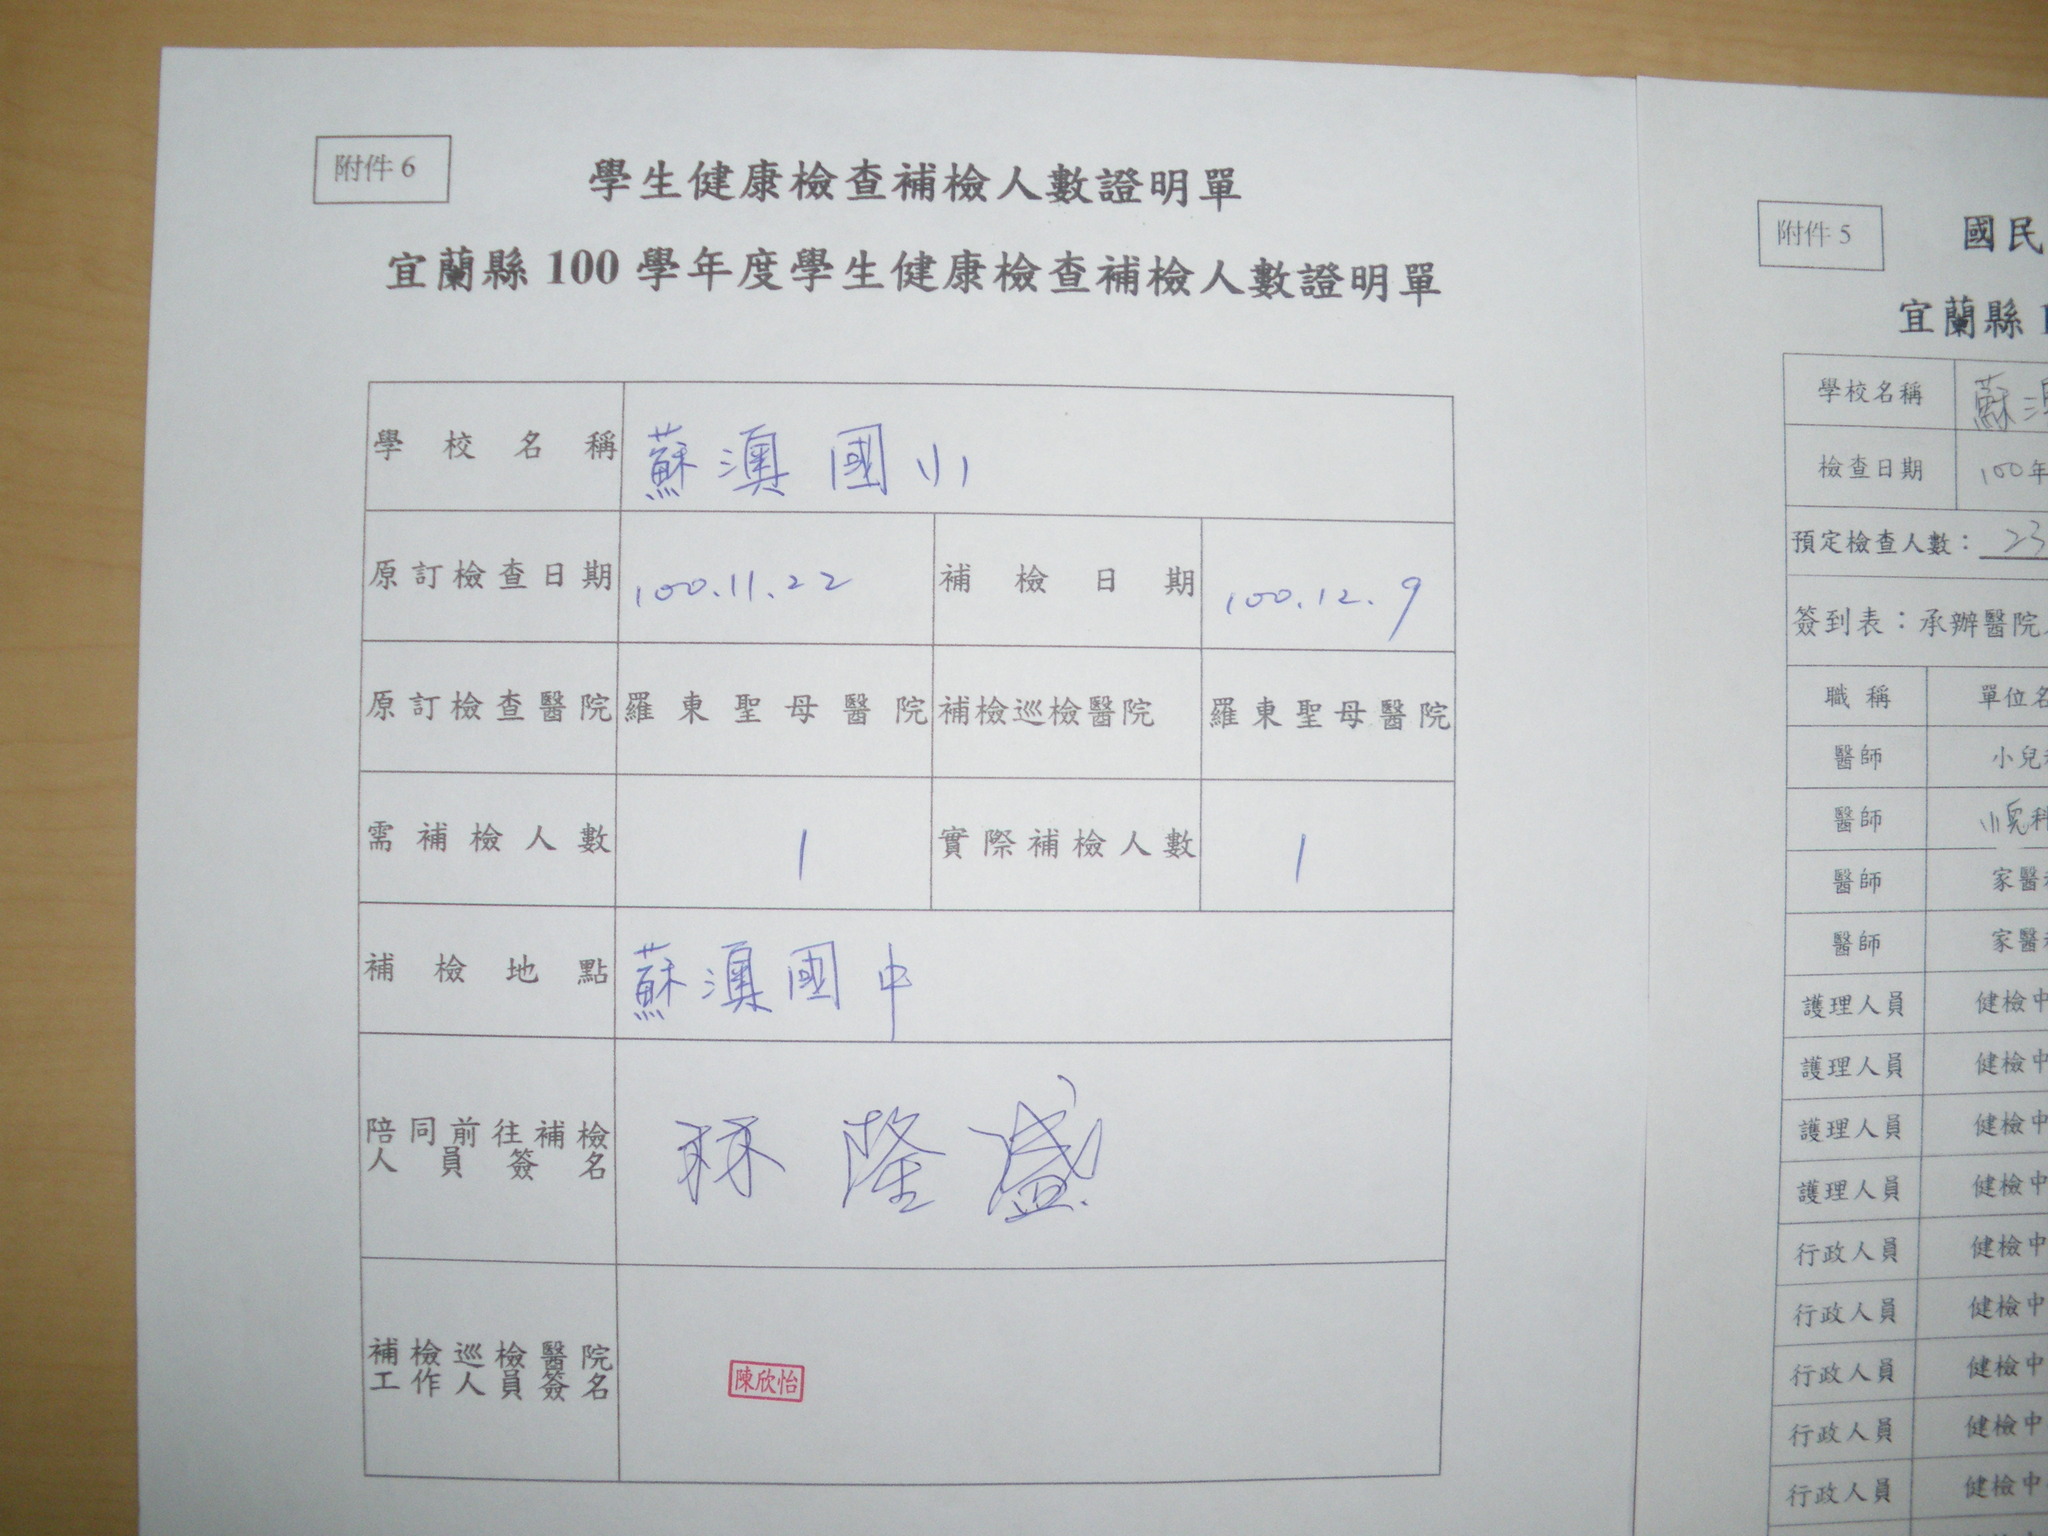 附件 6
學生健康檢查補檢人數證明單
宜蘭縣 100 學年度學生健康檢查補檢人數證明單
學校名稱 蘇澳國小
原訂檢查日期 100.11.22 補檢日期 100.12.9
原訂檢查醫院 羅東聖母醫院 補檢巡檢醫院 羅東聖母醫院
需補檢人數 1 實際補檢人數 1
補檢地點 蘇澳國中
陪同前往補檢
人員簽名
林隆盛
補檢巡檢醫院
工作人員簽名
陳欣怡
附件 5
國民
宜蘭縣 1
學校名稱 蘇澳
檢查日期 100年
預定檢查人數：23
簽到表：承辦醫院
職稱 單位名
醫師 小兒科
醫師 小兒科
醫師 家醫科
醫師 家醫科
護理人員 健檢中
護理人員 健檢中
護理人員 健檢中
護理人員 健檢中
行政人員 健檢中
行政人員 健檢中
行政人員 健檢中
行政人員 健檢中
行政人員 健檢中